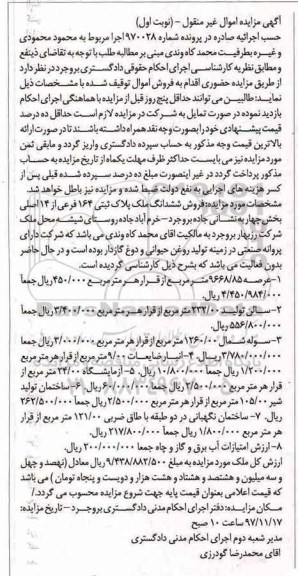 آگهی مزایده اموال غیر منقول - (نوبت اول)
حسب اجرائیه صادره در پرونده شماره ۹۷۰۰۲۸ اجرا مربوط به محمود محمودی
و غیره بطرفیت محمد کاه وندی مبنی بر مطالبه طلب با توجه به تقاضای ذینفع
و مطابق نظر به کارشناسی اجرای احکام حقوقی دادگستری بروجرد در نظر دارد
از طریق مزایده حضوری اقدام به فروش اموال توقیف شده با مشخصات ذیل
نماید: طالبین می توانند حداقل پنج روز قبل از مزایده با هماهنگی اجرای احکام
بازدید نموده در صورت تمایل به شرکت در مزایده لازم است حداقل ده درصد
قیمت پیشنهادی خود را بصورت وجه نقد همراه داشته باشند تا در صورت ارائه
بالاترین قیمت وجه مذکور به حساب سپرده دادگستری واریز گردد و مابقی ثمن
مورد مزایده نیز می بایست حداکثر ظرف مهلت یکماه از تاریخ مزایده به حساب
مذکور پرداخت گردد در غیر اینصورت مبلغ ده درصد سپرده شده قبلی پس از
کسر هزینه های اجرایی به نفع دولت ضبط شده و مزایده نیز باطل خواهد شد.
مشخصات مورد مزایده: فروش ششدانگ ملک پلاک ثبتی ۱۶۴ فرعی از ۱۴ اصلی
بخش چهار به نشانی جاده بروجرد - خرم آباد جاده روستای شیشه محل ملک
شرکت رزبهار بروجرد به مالکیت اقای محمد کاه وندی می باشد که شرکت دارای
پروانه صنعتی در زمینه تولید روغن حیوانی و دوغ گازدار بوده است و در حال حاضر
بدون فعالیت می باشد که بشرح ذیل کارشناسی گردیده است.
۱- عرصه ۹۶۶۸/۸۵ متر مربع از قرار هر متر مربع ۴۵۰/۰۰۰ ریال جمعاً
۴/۴۵۰/۹۸۴/۰۰۰ ریال.
۲- سالن تولید ۲۳۲/۰۰ متر مربع از قرار هر متر مربع ۳/۴۰۰/۰۰۰ ریال جمعاً
۵۵۶/۸۰۰/۰۰۰ ریال.
۳- سوله شمال ۱۲۶۰/۰۰ متر مربع از قرار هر متر مربع ۳/۰۰۰/۰۰۰ ریال جمعاً
۳/۷۸۰/۰۰۰/۰۰۰ ریال. ۴- انبار ضایعات ۹/۰۰ متر مربع از قرار هر متر مربع
۱/۲۰۰/۰۰۰ ریال جمعاً ۱۰/۸۰۰/۰۰۰ ریال. ۵- آزمایشگاه ۲۴/۰۰ متر مربع از
قرار هر متر مربع ۲/۵۰۰/۰۰۰ ریال جمعاً ۶۰/۰۰۰/۰۰۰ ریال. ۶- ساختمان تولید
شیر ۱۰۵/۰۰ متر مربع از قرار هر متر مربع ۲/۵۰۰/۰۰۰ ریال جمعاً ۲۶۲/۵۰۰/۰۰۰
ریال. ۷- ساختمان نگهبانی در دو طبقه با طاق ضربی ۱۲۱/۰۰ متر مربع از قرار
هر متر مربع ۱/۸۰۰/۰۰۰ ریال جمعاً ۲۱۷/۸۰۰/۰۰۰ ریال.
۸- ارزش امتیازات آب برق و گاز و چاه جمعا ۲۰۰/۰۰۰/۰۰۰ ریال.
ارزش کل ملک مورد مزایده به مبلغ ۹/۴۳۸/۸۸۲/۵۰۰ ریال معادل (نهصد و چهل
و سه میلیون و هشتصد و هشتاد و هشت هزار و دویست و پنجاه تومان) می باشد
که قیمت اعلامی بعنوان قیمت پایه جهت شروع مزایده محسوب می گردد./
مکان مزایده: دفتر اجرای احکام مدنی دادگستری بروجرد - تاریخ مزایده:
۹۷/۱۱/۱۷ ساعت ۱۰ صبح
مدیر شعبه دوم اجرای احکام مدنی دادگستری
اقای محمدرضا گودرزی